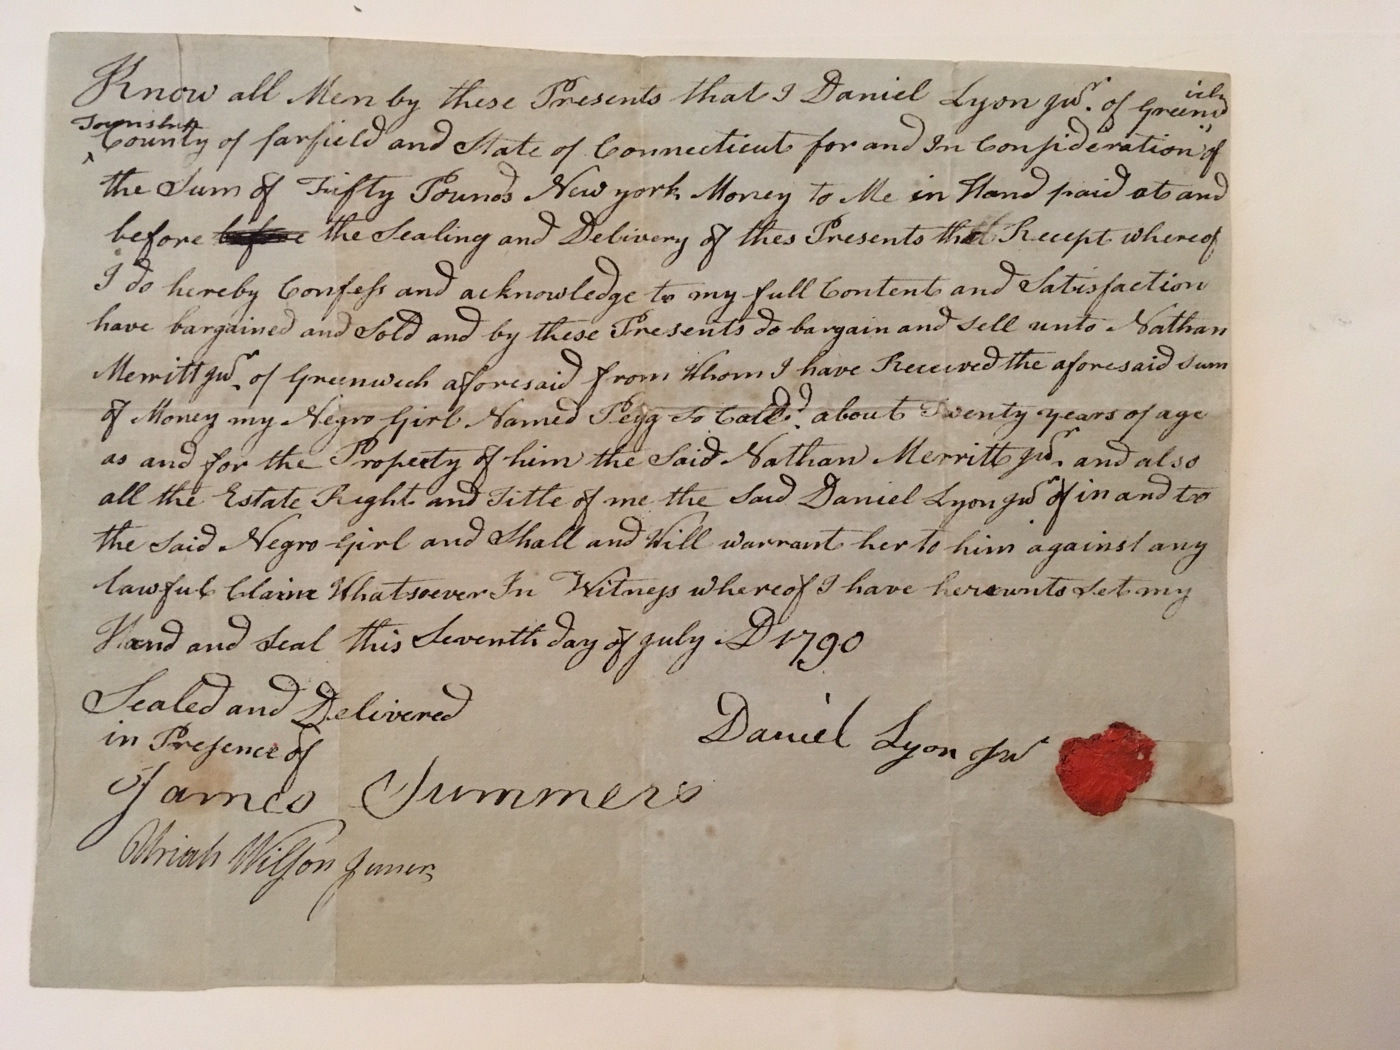 Know all Men by these Presents that I Daniel Lyon Junr. of Greenwich
Township
County of farfield and State of Connecticut for and In Consideration of
the Sum of Fifty Pounds New york Money to Me in Hand paid at and
before before the Sealing and Delivery of thes Presents the Recept whereof
I do hereby Confess and acknowledge to my full Content and Satisfaction
have bargained and Sold and by these Presents do bargain and Sell unto Nathan
Merritt Junr. of Greenwech aforesaid from Whom I have Received the aforesaid Sum
of Money my Negro Girl Named Pegg So Calld. about Twenty years of age
as and for the Property of him the Said Nathan Merritt Junr. and also
all the Estate Right and Title of me the Said Daniel Lyon Junr of in and to
the Said Negro Girl and Shall and Will warrant her to him against any
lawful Claim Whatsoever In Witness whereof I have hereunto Set my
Hand and Seal this Seventh day of July AD 1790
Sealed and Delivered
in Presence of
Daniel Lyon Junr
James Summers
Uriah Wilson Juner